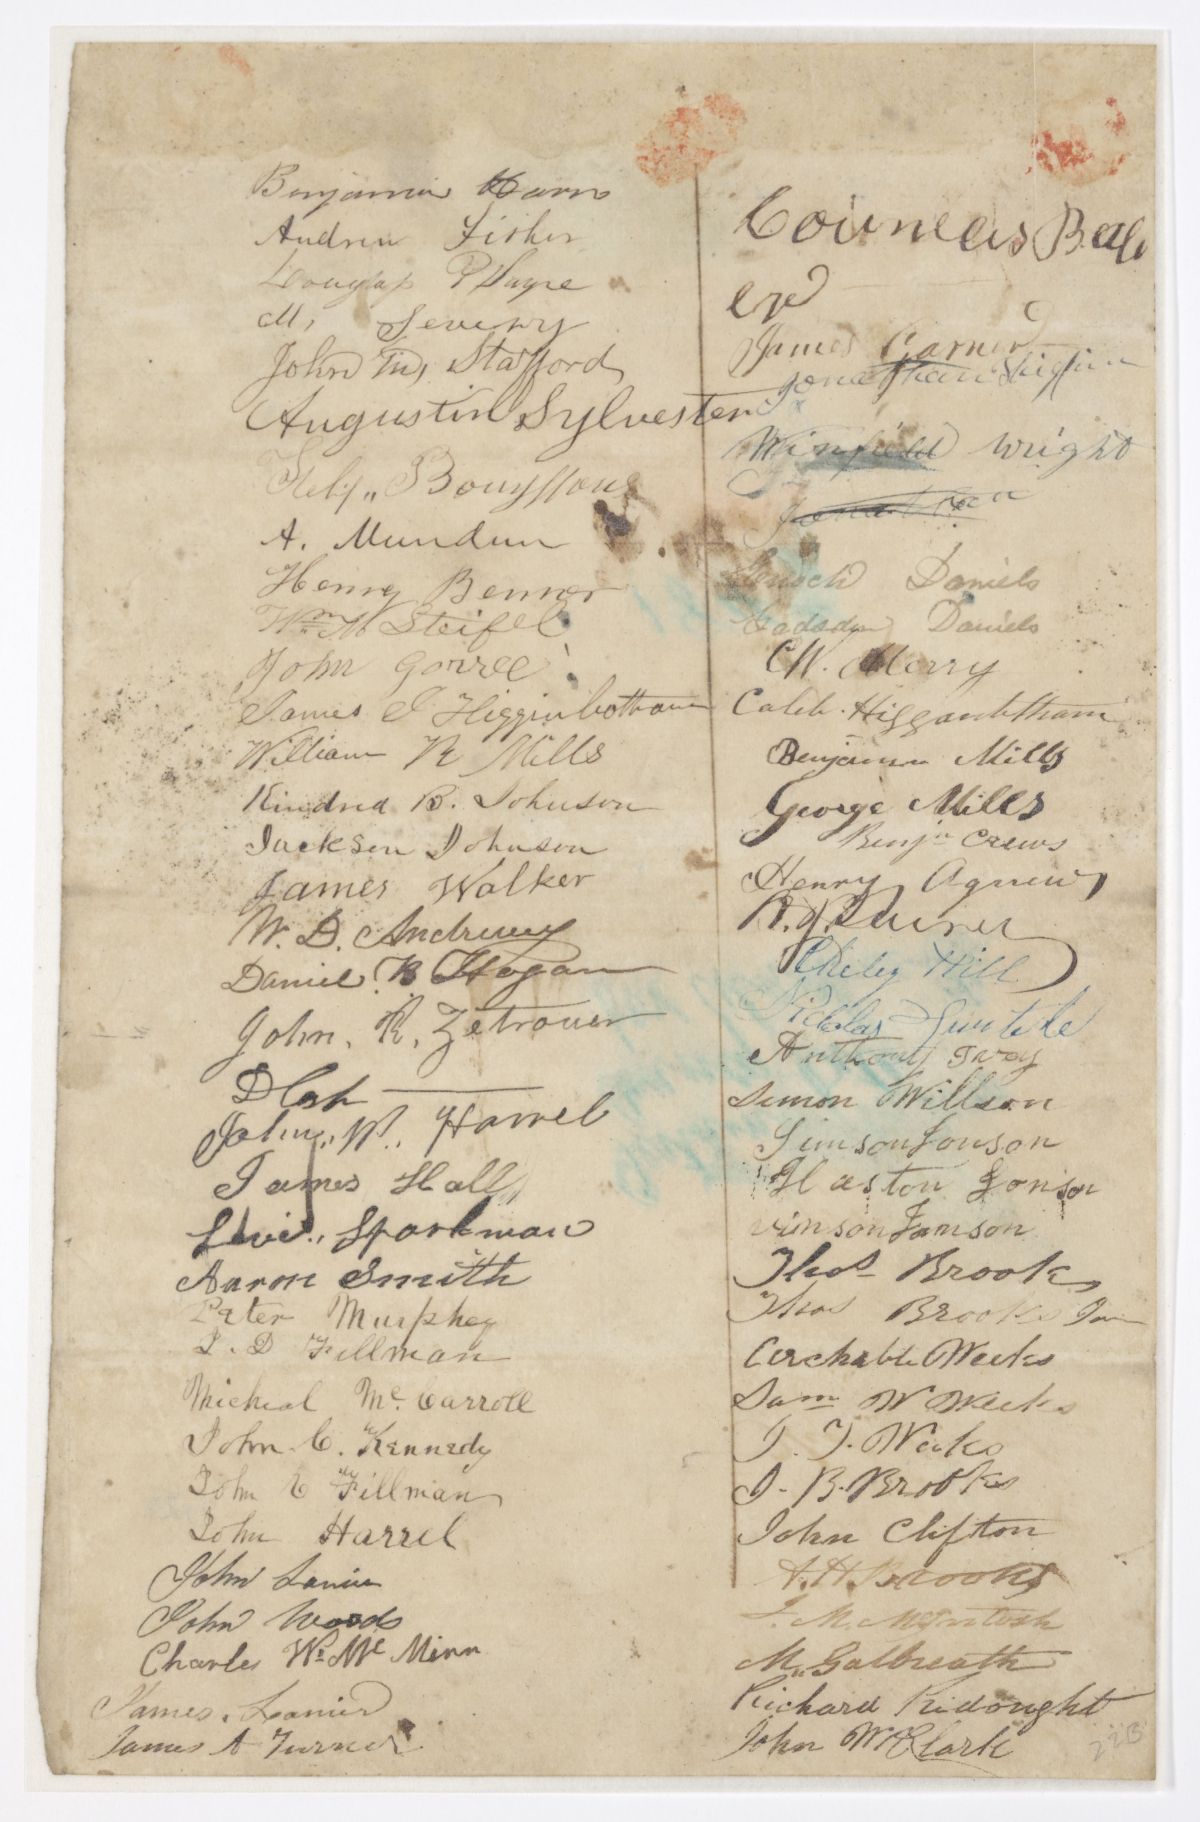 Benjamin Harn
Andrew Fisher
Douglas P Sayre
M. Severy
John M. Stafford
Augustin Sylvester
Bouyssou
A. Mundun
Henry Benner
Wm H Steifel
John Gorree
James J Higginbotham
William R Mills
Kindred B. Johnson
Jackson Johnson
James Walker
W. D. Andrews
Daniel B Hogan
John, R, Zetrouer
John,, W,, Harrel
James Hall
Levi,, Sparkman
Aaron Smith
Peter Murphey
J. D Fillman
Micheal Mc Carroll
John C. Kennedy
John C Fillman
John Harrel
John Lanier
John Woods
Charles Wm Mc Minn
James. Lanier
James A Turner
Couneleis Bail
eyd
James Garner
Jonathan Higgin
Winfield Wright
Jonathan
Enoch Daniels
Gadsdin Daniels
C W. Merry
Caleb. Higganbtham
Benjamin Mills
George Mills
Benjn Crews
Henry Agnew
Hill
Nickolas
Anthony Ivey
Simon Willson
Simson Jonson
Haston Jonson
vinson Jamson
Thos Brooks
Thos Brooks Jun
Archable Weeks
Sam W Weeks
J. J. Weeks
J. B. Brooks
John Clifton
A. H Brooks
J. M. McIntosh
M,, Galbreath
Richard Ridought
John W Clark
22B